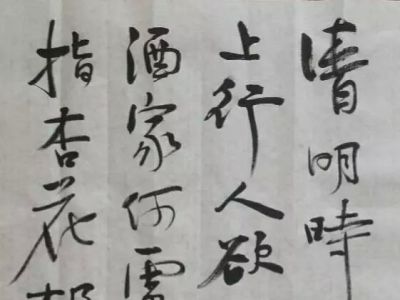 清明時
上行人欲
酒家何
指杏花